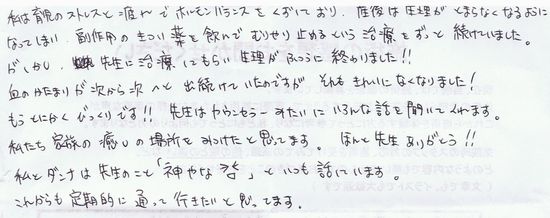 私は育児のストレスと疲れでホルモンバランスをくずしており、産後は生理がとまらなくなるように
なってしまい、副作用のきつい薬を飲んでむりやり止めるという治療をずっと続けていました。
がしかし、先生に治療してもらい生理がふつうに終わりました!!
血のかたまりが次から次へと出続けていたのですが、それもきれいになくなりました!
もうとにかくびっくりです!! 先生はカウンセラーみたいにいろんな話を聞いてくれます。
私たち家族の癒しの場所をみつけたと思ってます。 ほんと先生ありがとう!!
私とダンナは先生のこと「神やな
」といつも話しています。
これからも定期的に通って行きたいと思ってます。